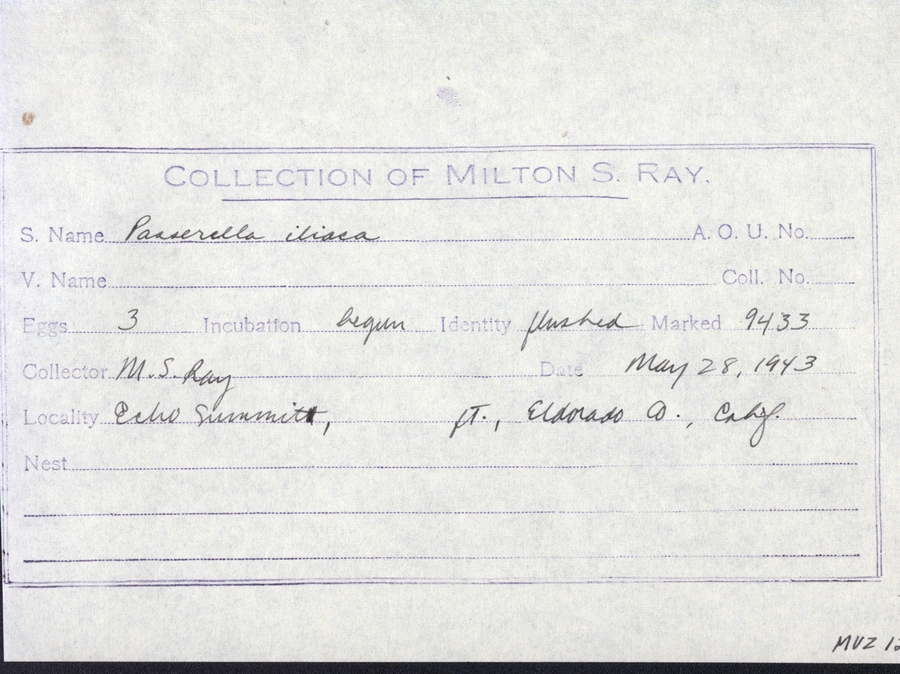 COLLECTION OF MILTON S. RAY.
S. Name Passerella iliaca A. O. U. No.
V. Name Coll. No.
Eggs 3 Incubation begun Identity flushed Marked 9433
Collector M.S. Ray Date May 28, 1943
Locality Echo Summit, ft., Eldorado Co., Calif.
Nest
MVZ 12